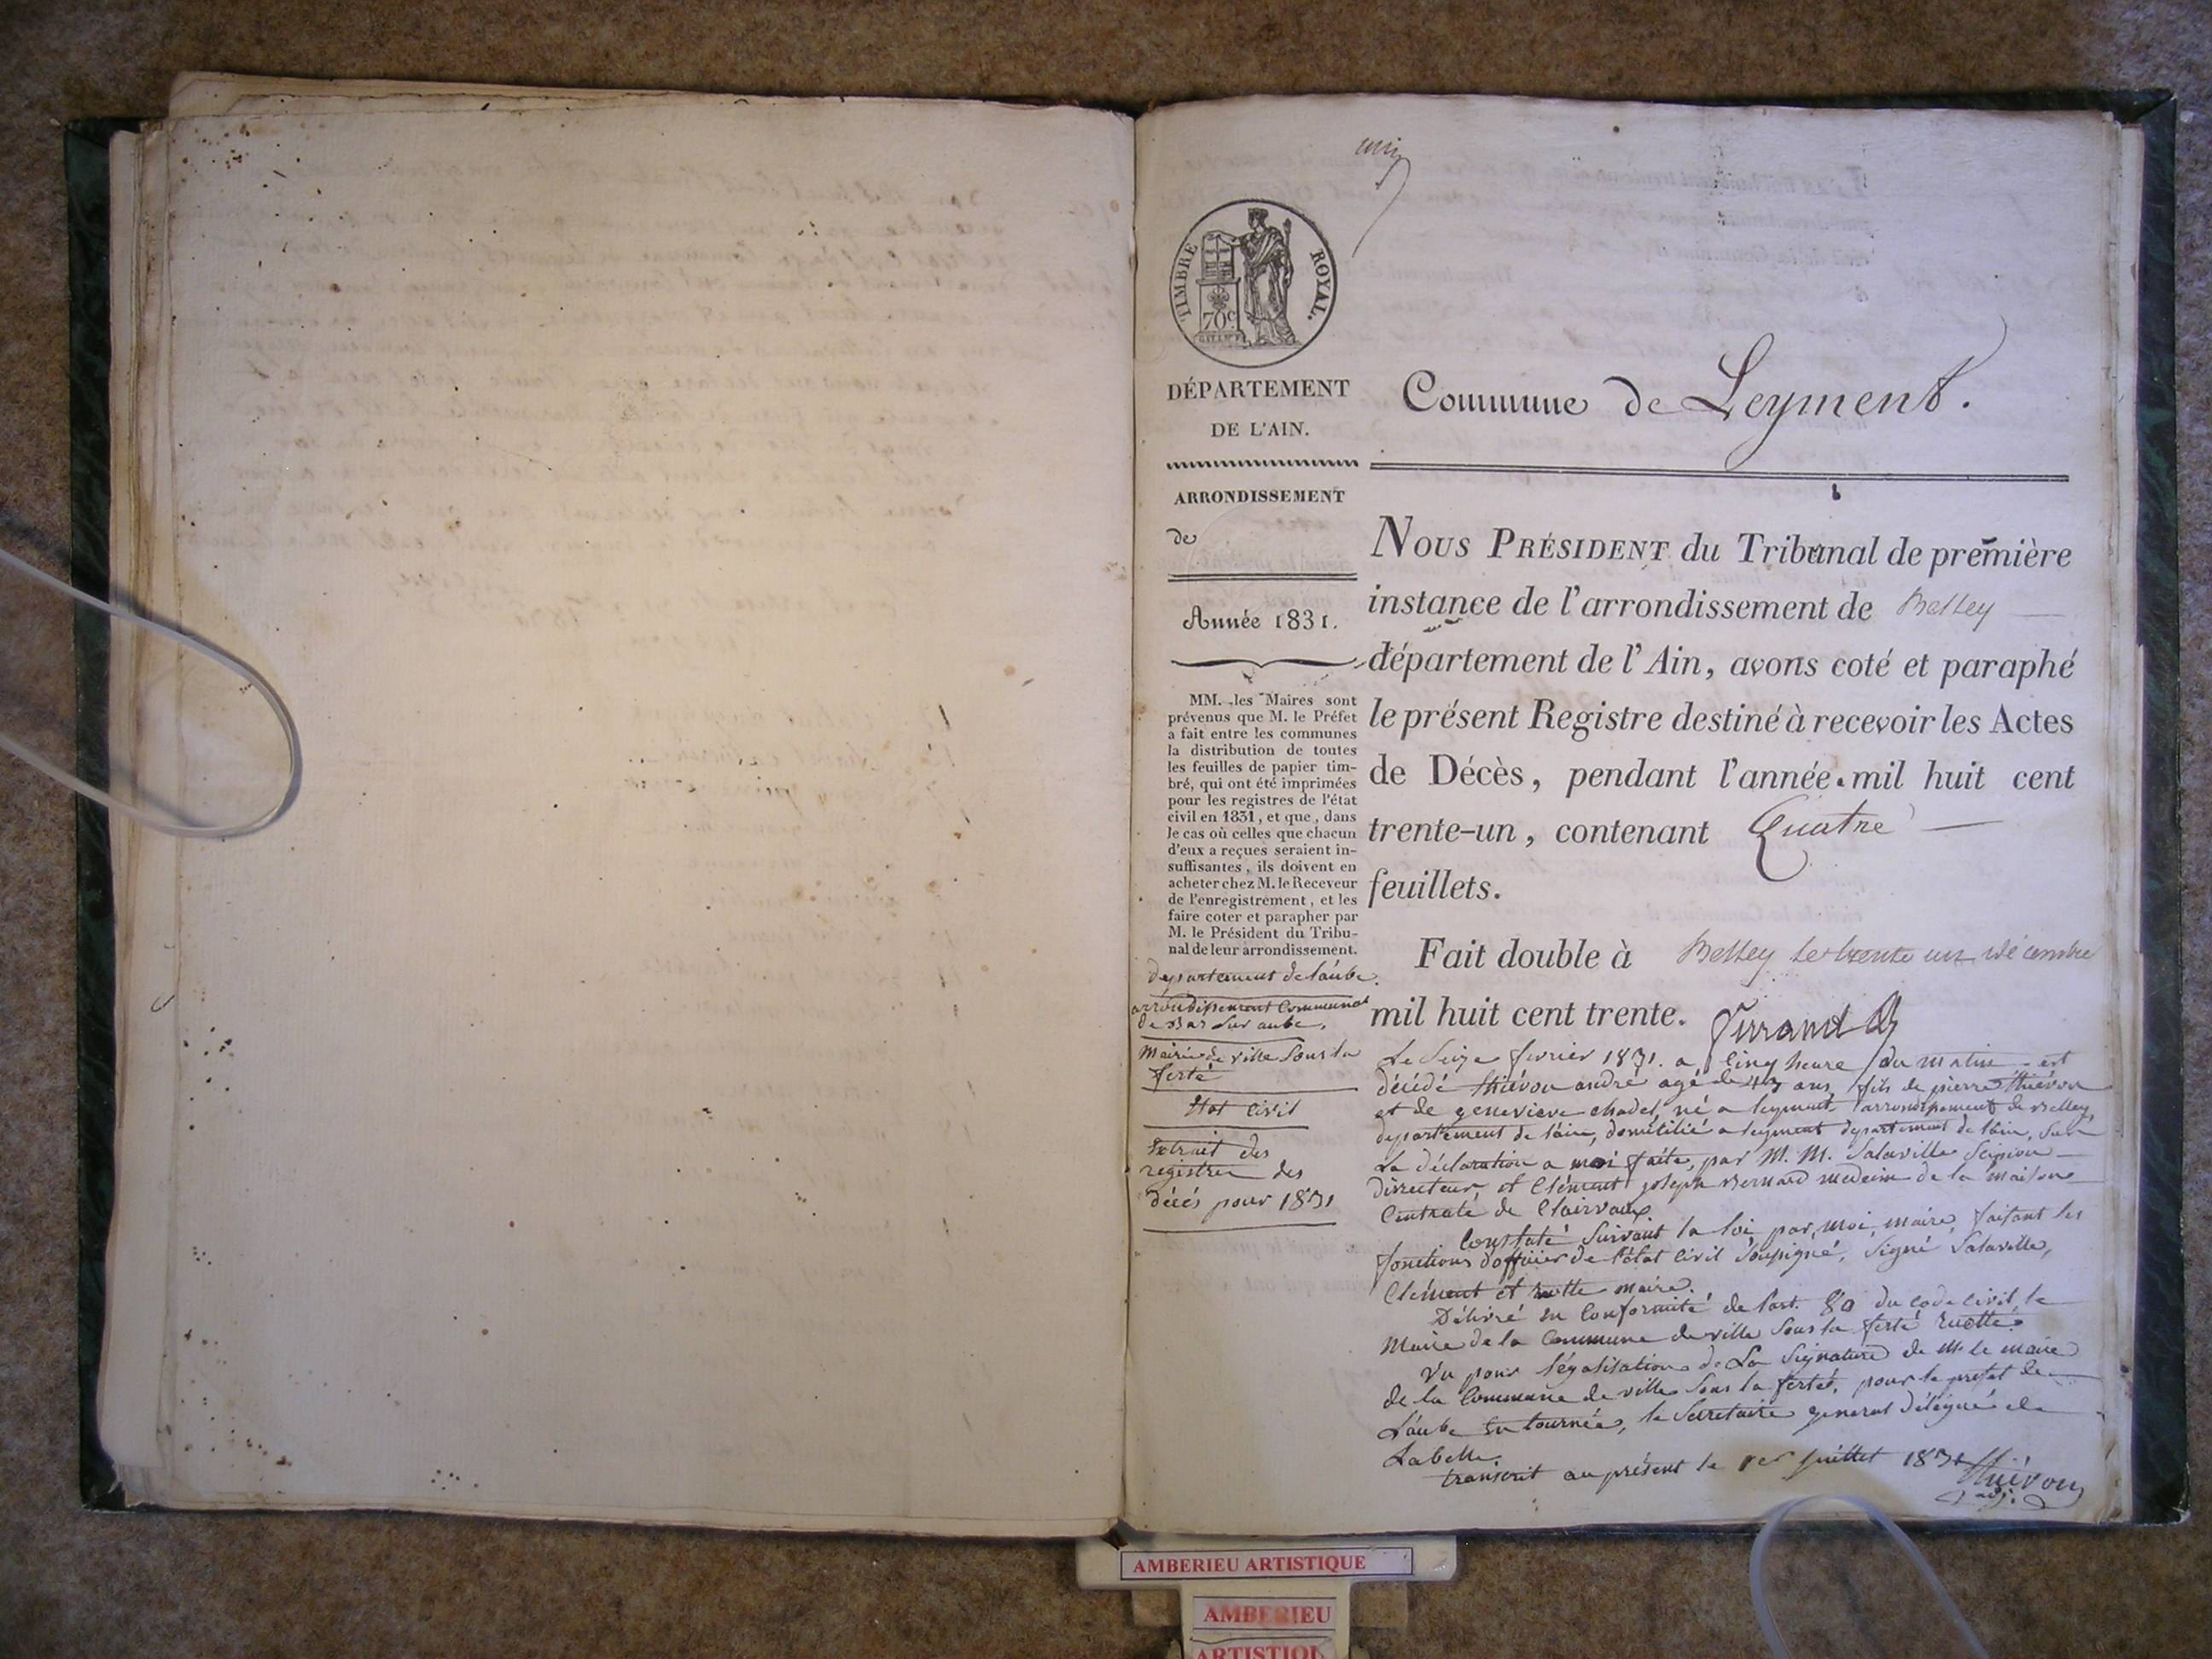 TIMBRE ROYAL.
70c
DÉPARTEMENT
DE L'AIN.
ARRONDISSEMENT
de
Année 1831.
MM. les Maires sont
prévenus que M. le Préfet
a fait entre les communes
la distribution de toutes
les feuilles de papier tim-
bré, qui ont été imprimées
pour les registres de l'état
civil en 1831, et que, dans
le cas où celles que chacun
d'eux a reçues seraient in-
suffisantes, ils doivent en
acheter chez M. le Receveur
de l'enregistrement, et les
faire coter et parapher par
M. le Président du Tribu-
nal de leur arrondissement.
departement de l'aube.
arrondissement Communal
de Bar Sur aube.
Mairie de ville Sous la
ferté
Etat Civil
Extrait des
registres des
décés pour 1831
Commune de Leyment.
NOUS PRÉSIDENT du Tribunal de première
instance de l'arrondissement de Belley
département de l'Ain, avons coté et paraphé
le présent Registre destiné à recevoir les Actes
de Décès, pendant l'année mil huit cent
trente-un, contenant Quatre
feuillets.
Fait double à Belley le trente un décembre
mil huit cent trente.
Le Seize fevrier 1831. a Cinq heure du matin est
décédé thiévon andré agé de 43 ans, fils de pierre thiévon
et de genevieve chadel, né a leyment, arrondissement de Belley,
departement de l'ain, domicilié a leyment departement de l'ain, Sur
La déclaration a moi faite, par M. M. Salaville Scipion
directeur, et Clément joseph Bernard medecin de la maison
Centrale de Clairvaux
Constaté Suivant la loi par, moi maire, faisant les
fonctions d'officier de l'état Civil Soussigné, Signé Salaville,
Clément et ruotte maire.
Délivré en Conformité de l'art. 80 du Code Civil, le
Maire de la Commune de ville Sous la ferté ruotte.
Vu pour légalisation de La Signature de Mr le maire
de la Commune de ville Sous la ferté, pour le prefet de
L'aube En tournée, le Secretaire general délégué de
Labelle.
transcrit au présent le 1er juillet 1831 thiévon
adj.
AMBERIEU ARTISTIQUE
AMBERIEU